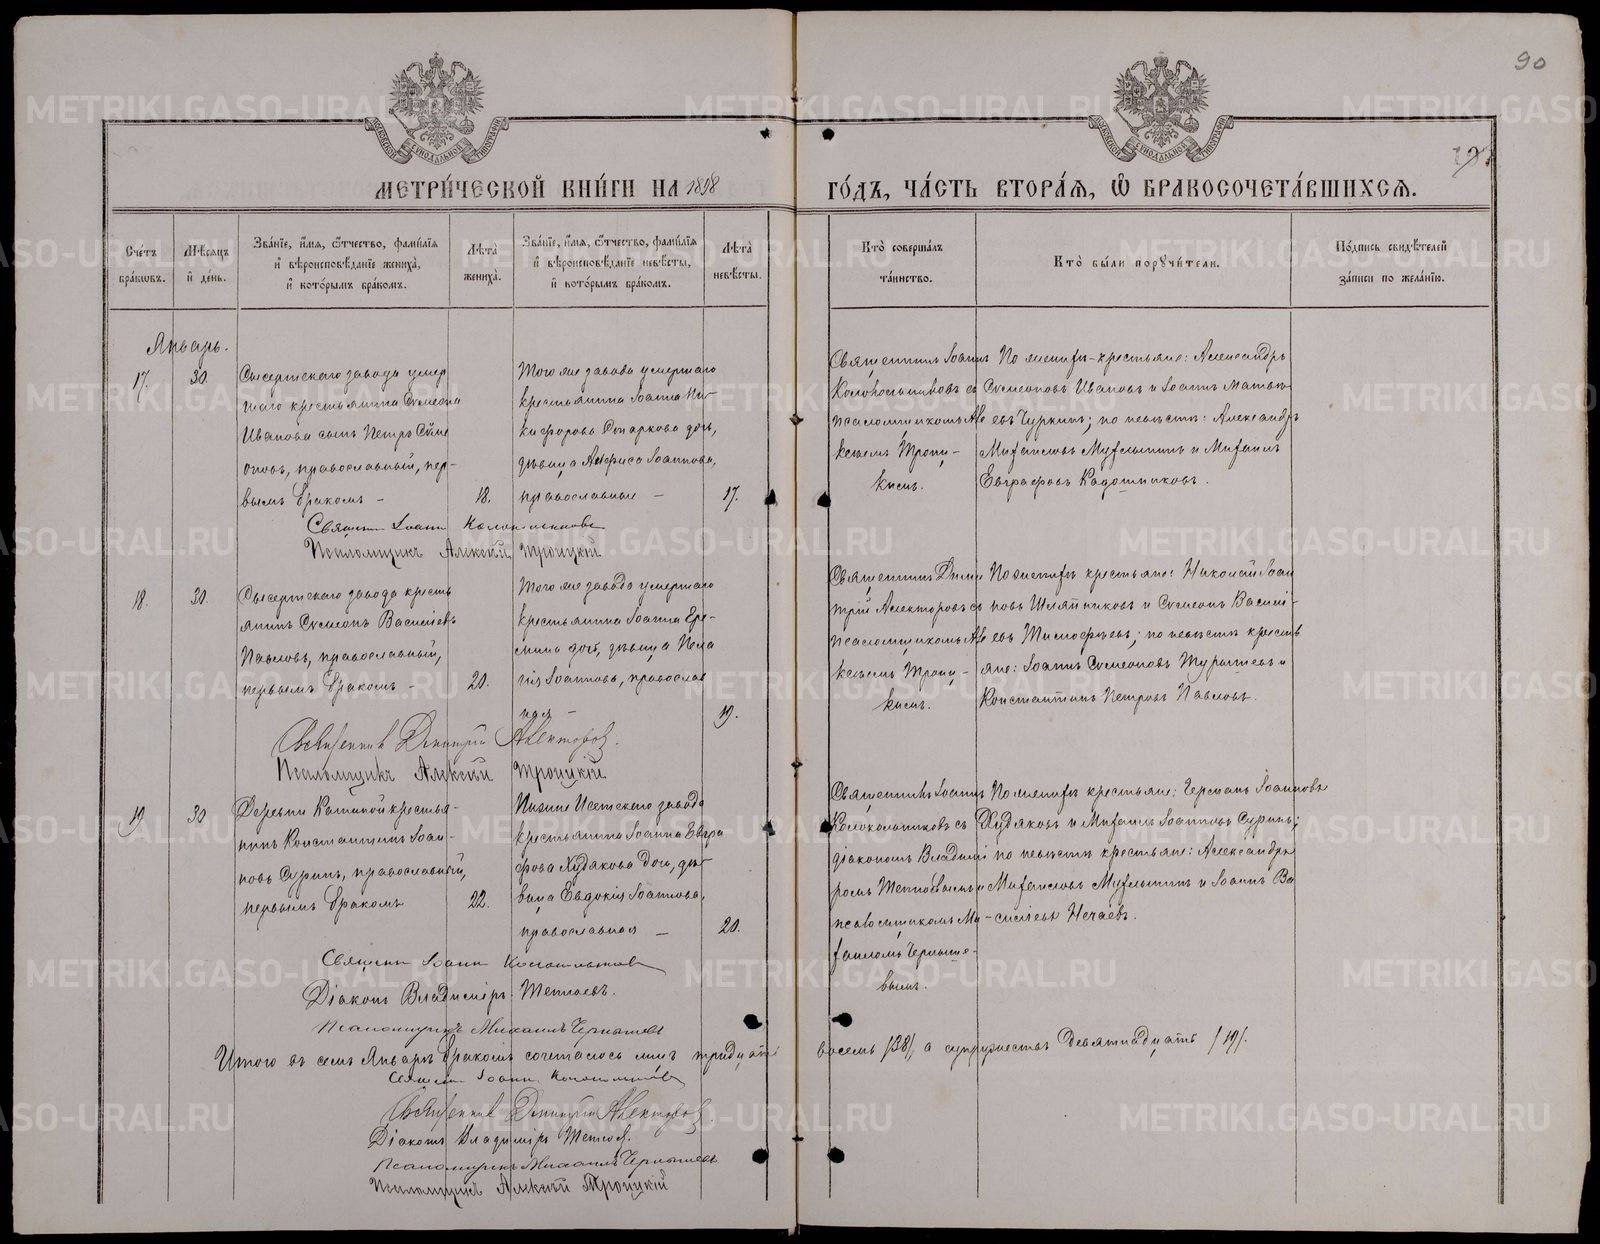 90
МОСКОВСКОЙ СѴНОДАЛЬНОЙ ТИПОГРАФІИ
МОСКОВСКОЙ СѴНОДАЛЬНОЙ ТИПОГРАФІИ
МЕТРИ́ЧЕСКОЙ КНИ́ГИ НА 1898
ГО́ДЪ, ЧА́СТЬ ВТОРА́Ѧ, Ѽ БРАКОСОЧЕТА́ВШИХСѦ.
Сче́тъ бра́ковъ.
Мѣ́сѧцъ и҆ де́нь.
Зва́нїе, и҆́мѧ, ѻ҆́тчество, фами́лїѧ и҆ вѣроисповѣ́данїе жениха̀, и҆ кото́рымъ бра́комъ.
Лѣ́та жениха̀.
Зва́нїе, и҆́мѧ, ѻ҆́тчество, фами́лїѧ и҆ вѣроисповѣ́данїе невѣ́сты, и҆ кото́рымъ бра́комъ.
Лѣ́та невѣ́сты.
Кто̀ соверша́лъ та́инство.
Кто̀ бы́ли порꙋчи́тели.
По́дпись свидѣ́телей за́писи по жела́нїю.
Январь.
17.
30.
Сысертскаго завода умер
шаго крестьянина Сѵмеона
Иванова сынъ Петръ Сѵме
оновъ, православный, пер-
вымъ бракомъ –
18.
Того же завода умершаго
крестьянина Іоанна Ни-
кифорова дочь,
дѣвица Анфиса Іоаннова,
православная –
17.
Священникъ Іоаннъ
Колокольниковъ съ
псаломщикомъ Але
ксѣемъ Троиц-
кимъ.
По женихѣ крестьяне: Александръ
Сѵмеоновъ Ивановъ и Іоаннъ Матвѣ-
евъ Чуркинъ; по невѣстѣ: Александръ
Михаиловъ и Михаилъ
Евграфовъ Кадошниковъ.
Священ Іоаннъ Колокольниковъ
Псаломщикъ Алексѣй Троицкій
18.
30.
Сысертскаго завода кресть
янинъ Сѵмеонъ Василіевъ
Павловъ, православный,
первымъ бракомъ –
20.
Того же завода умершаго
крестьянина Іоанна Ере-
мина дочь, дѣвица Пела
гія Іоаннова, православ
ная –
19.
Священникъ Дими
трій Алекторовъ съ
псаломщикомъ Але
ксѣемъ Троиц-
кимъ.
По женихѣ крестьяне: Николай Іоан
новъ Шляпниковъ и Сѵмеонъ Василі-
евъ Тимофѣевъ; по невѣстѣ кресть
яне: Іоаннъ Сѵмеоновъ Турыгевъ и
Константинъ Петровъ Павловъ.
Священникъ Димитрій Алекторовъ.
Псаломщикъ Алексѣй Троицкій
19
30
Деревни крестья-
нинъ Константинъ Іоан-
новъ Суринъ, православный,
первымъ бракомъ
22.
Нижне Исетскаго завода
крестьянина Іоанна Евгра
фова Худякова дочь, дѣ-
вица Евдокія Іоаннова,
православная –
20.
Священникъ Іоаннъ
Колокольниковъ съ
діакономъ Владимі
ромъ и
псаломщикомъ Ми-
хаиломъ Черныше-
вымъ.
По женихѣ крестьяне: Германъ Іоанновъ
Худяковъ и Михаилъ Іоанновъ Суринъ;
по невѣстѣ крестьяне: Александръ
Михаиловъ и Іоаннъ Ва
силіевъ Нечаевъ.
Священ Іоаннъ Колокольниковъ
Діаконъ Владиміръ
Псаломщикъ Михаилъ Чернышевъ
Итого въ семъ Январѣ бракомъ сочеталось лицъ тридцать восемь /38/, а супружествъ девятнадцать /19/.
Священ Іоаннъ Колокольниковъ
Священникъ Димитрій Алекторовъ
Діаконъ Владиміръ
Псаломщикъ Михаилъ Чернышевъ
Псаломщикъ Алексѣй Троицкій
METRIKI.GASO-URAL.RU